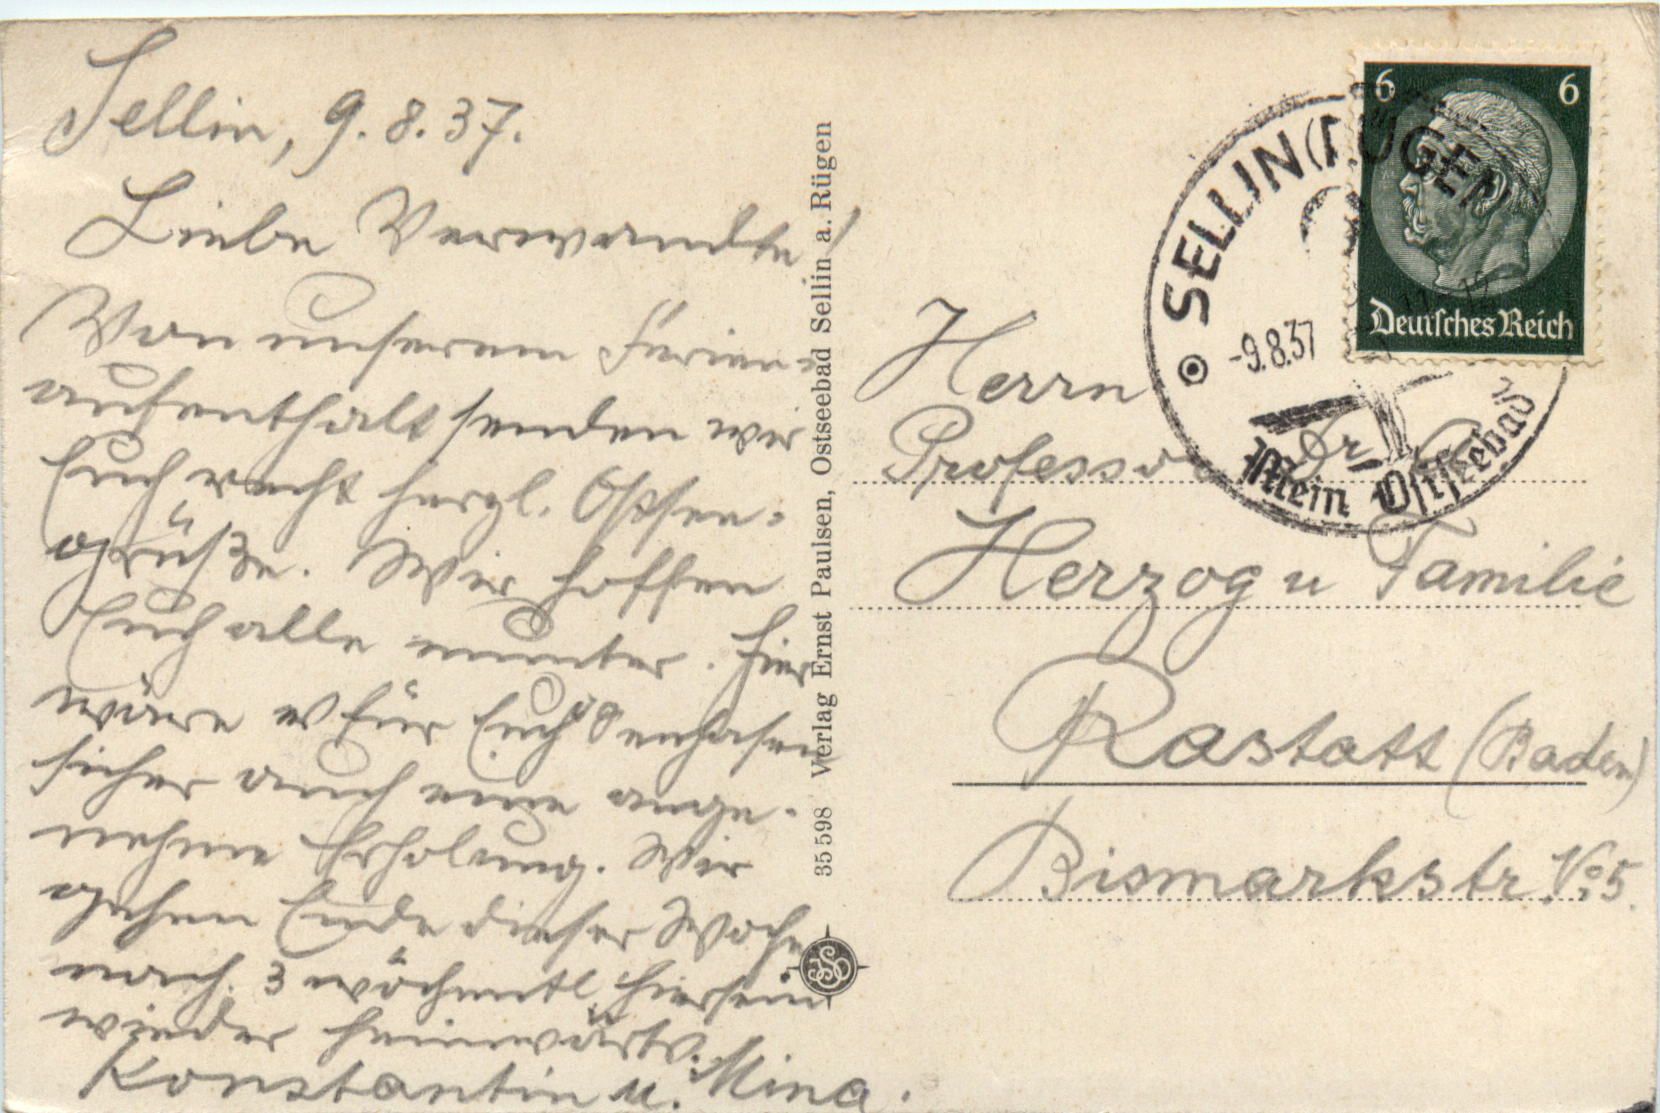 Sellin, 9. 8. 37.
Liebe Verwandte!
Von unserem Ferien-
aufenthalt senden wir
Euch recht herzl. Ostsee-
grüße. Wir hoffen
Euch alle munter. Hier
wäre es für Euch
sicher auch eine ange-
nehme Erholung. Wir
gehen Ende dieser Woche
nach 3 wöchentl. Hiersein
wieder heimwärts.
Konstantin u. Mina.
35 598 Verlag Ernst Paulsen, Ostseebad Sellin a. Rügen
6 6
Deutsches Reich
SELLIN (RÜGEN)
-9.8.37
11-12
Mein Ostseebad
Herrn
Professor Dr.
Herzog u Familie
Rastatt (Baden)
Bismarkstr. No 5.